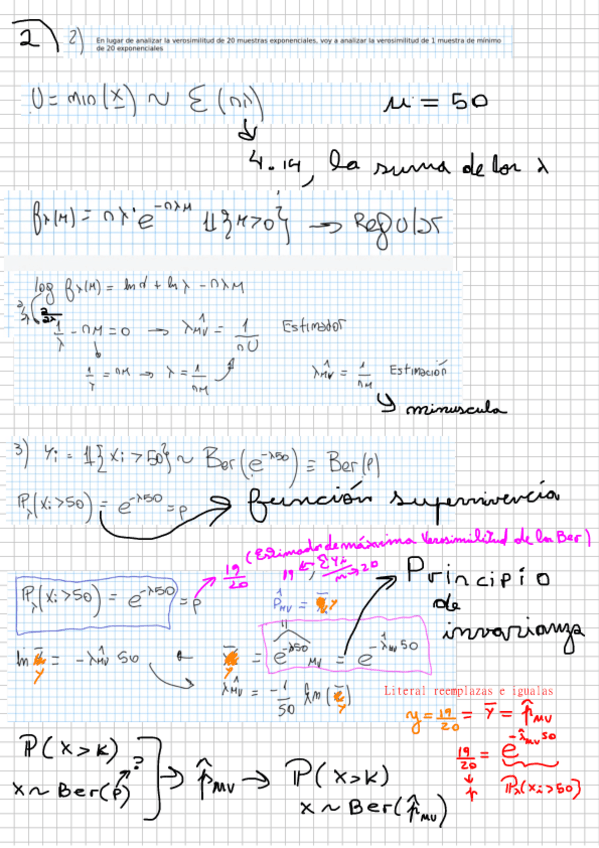 2
2) En lugar de analizar la verosimilitud de 20 muestras exponenciales, voy a analizar la verosimilitud de 1 muestra de mínimo de 20 exponenciales
U = min(x) ~ ε(nλ)
u = 50
4.14, la suma de los λ
fλ(u) = nλ·e^-nλu 1{u>0} → Regular
log fλ(u) = ln n + ln λ - nλu
1/λ - nu = 0 → λ̂MV = 1/nU Estimador
1/λ = nu → λ = 1/nu
λ̂MV = 1/nu Estimación
minuscula
3) Yi = 1{Xi > 50} ~ Ber(e^-λ50) = Ber(p)
Pλ(Xi>50) = e^-λ50 = p → función supervivencia
(Estimador de máxima verosimilitud de la Ber)
19/20
19 ← ΣYi
n → 20
Pλ(Xi>50) = e^-λ50 = p
p̂MV = ȳ
Principio de invarianza
ln ȳ = -λ̂MV 50
ȳ = e^-λ50 MV = e^-λ̂MV 50
λ̂MV = -1/50 ln(ȳ)
Literal reemplazas e igualas
y = 19/20 = ȳ = p̂MV
19/20 = e^-λ̂MV 50
p
Pλ(Xi>50)
P(X>k)
X ~ Ber(p) ?
→ p̂MV → P(X>k)
X ~ Ber(p̂MV)